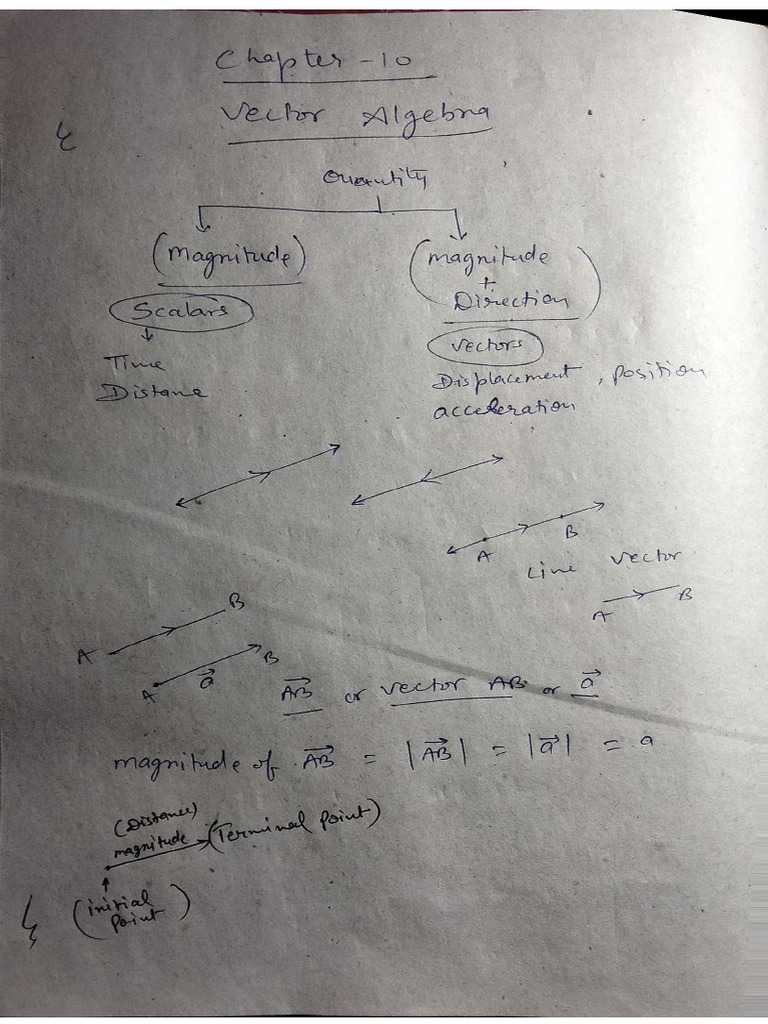 Chapter - 10
Vector Algebra
Quantity
(Magnitude)
(magnitude
+
Direction)
Scalars
vectors
Time
Distane
Displacement, position
acceleration
A B
Line Vector
A B
A B
A B
a⃗
A⃗B⃗ or vector AB or a⃗
magnitude of A⃗B⃗ = |A⃗B⃗| = |a⃗| = a
(Distance)
magnitude (Terminal point)
(initial
point)